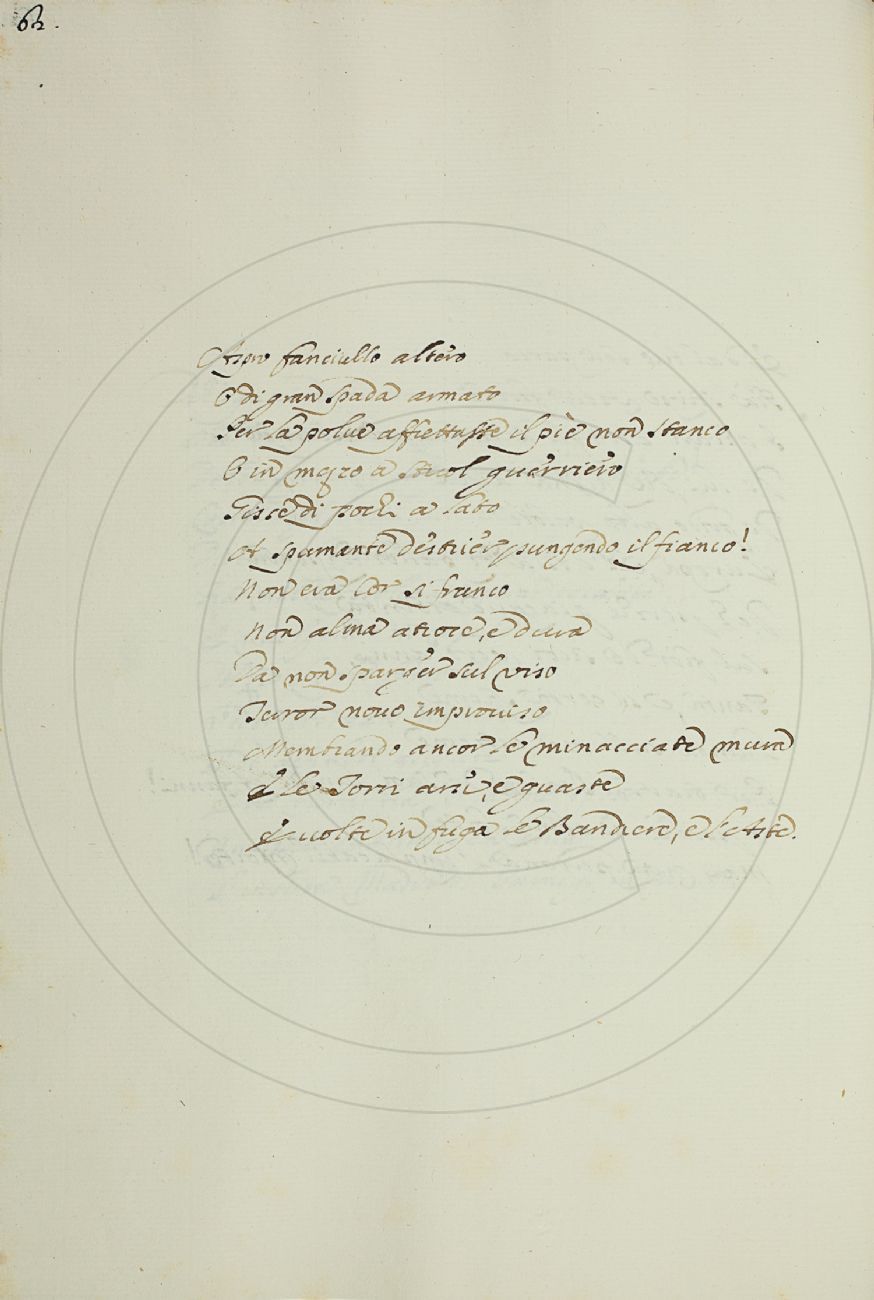 62.
Aspro fanciullo altero
O di gran spada armato
Per la polue affrettaste il piè non stanco
O in mezo a stuol guerriero
Gisce di pochi a lato
A spumante destrier pungendo il fianco!
Non era Cor si franco
Non alma atroce, e dura
Da non sparger sul viso
Terror nouo improuiso
Membrando ancor le minacciate mura
E le Torri arse, e guaste
E uolte in fuga le Bandiere, e le Aste.